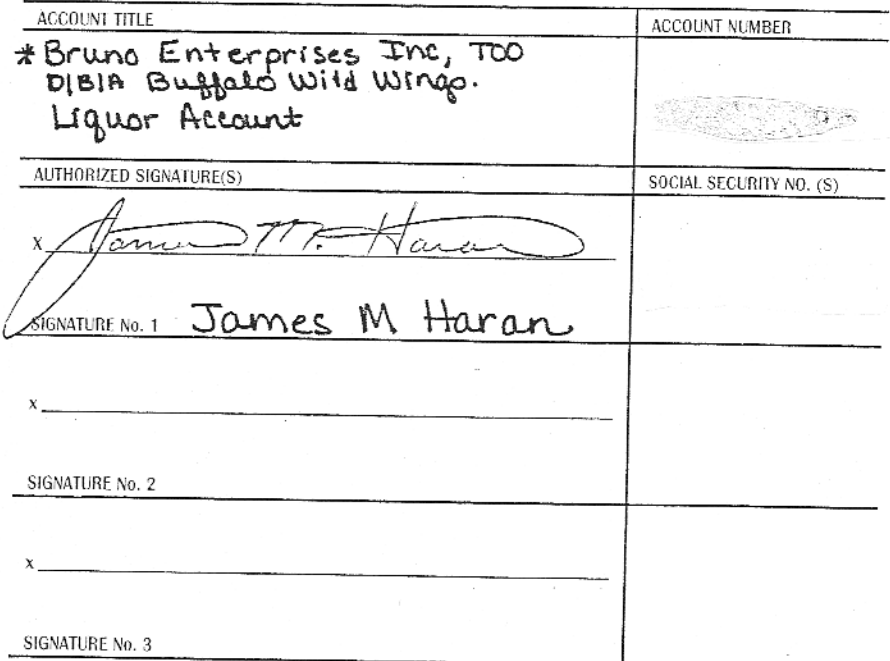 ACCOUNT TITLE
ACCOUNT NUMBER
* Bruno Enterprises Inc, TOO
D|B|A Buffalo Wild Wings.
Liquor Account
AUTHORIZED SIGNATURE(S)
SOCIAL SECURITY NO. (S)
X James M. Haran
SIGNATURE No. 1 James M Haran
X
SIGNATURE No. 2
X
SIGNATURE No. 3